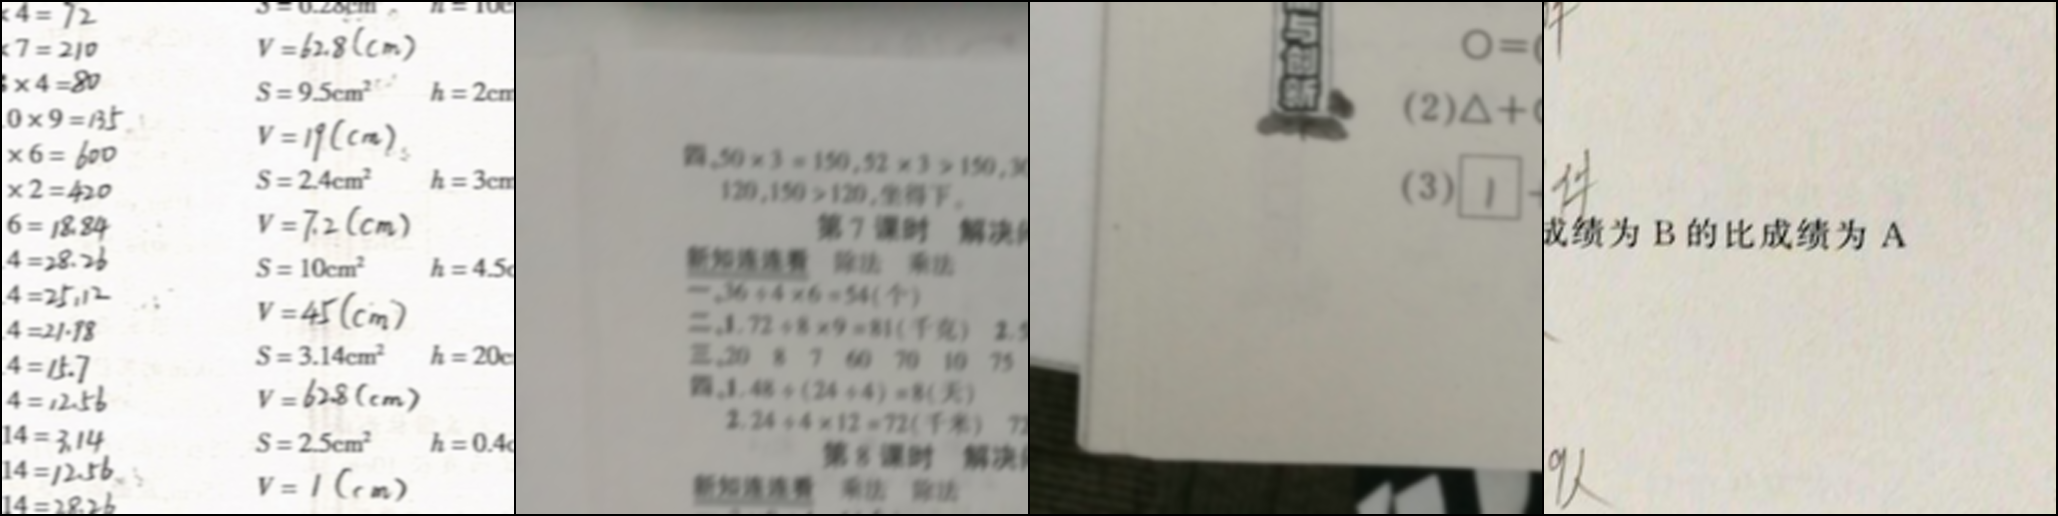 ×4=72
×7=210
×4=80
0×9=135
×6=600
×2=420
6=18.84
4=28.26
4=25.12
4=21.98
4=15.7
4=12.56
14=3.14
14=12.56
14=28.26
S=6.28cm h=10c
V=62.8(cm)
S=9.5cm² h=2cm
V=19(cm)
S=2.4cm² h=3cm
V=7.2(cm)
S=10cm² h=4.5c
V=45(cm)
S=3.14cm² h=20c
V=62.8(cm)
S=2.5cm² h=0.4c
V=1(cm)
四、50×3=150,52×3>150,30
120,150>120,坐得下。
第7课时 解决
新知连连看 除法 乘法
一、36÷4×6=54(个)
二、1.72÷8×9=81(千克) 2.
三、20 8 7 60 70 10 75
四、1.48÷(24÷4)=8(天)
2.24÷4×12=72(千米) 72
第8课时 解决
新知连连看 乘法 除法
与创新
O=
(2)△+
(3)1
件
成绩为 B 的比成绩为 A